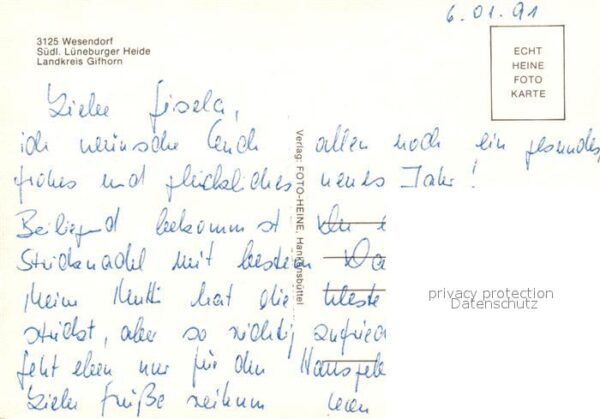 6.01.91
3125 Wesendorf
Südl. Lüneburger Heide
Landkreis Gifhorn
ECHT
HEINE
FOTO
KARTE
Liebe Gisela,
ich wünsche Euch allen noch ein gesundes
frohes und glückliches neues Jahr!
Beiliegend bekommst Du
Stricknadel mit bestem Da
Meine Mutti hat die Weste
strickt, aber so richtig zufried
geht eben nur für den Hausge
Liebe Grüße
Verlag: FOTO-HEINE, Hankensbüttel
privacy protection
Datenschutz